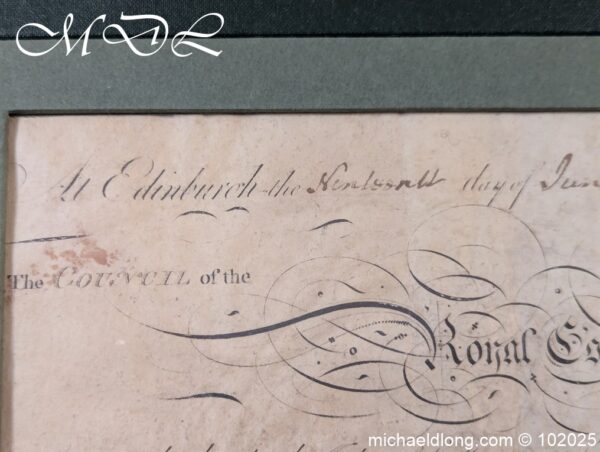 MDL
At Edinburgh the Nineteenth day of Jun
The COUNCIL of the
Royal
michaeldlong.com © 102025